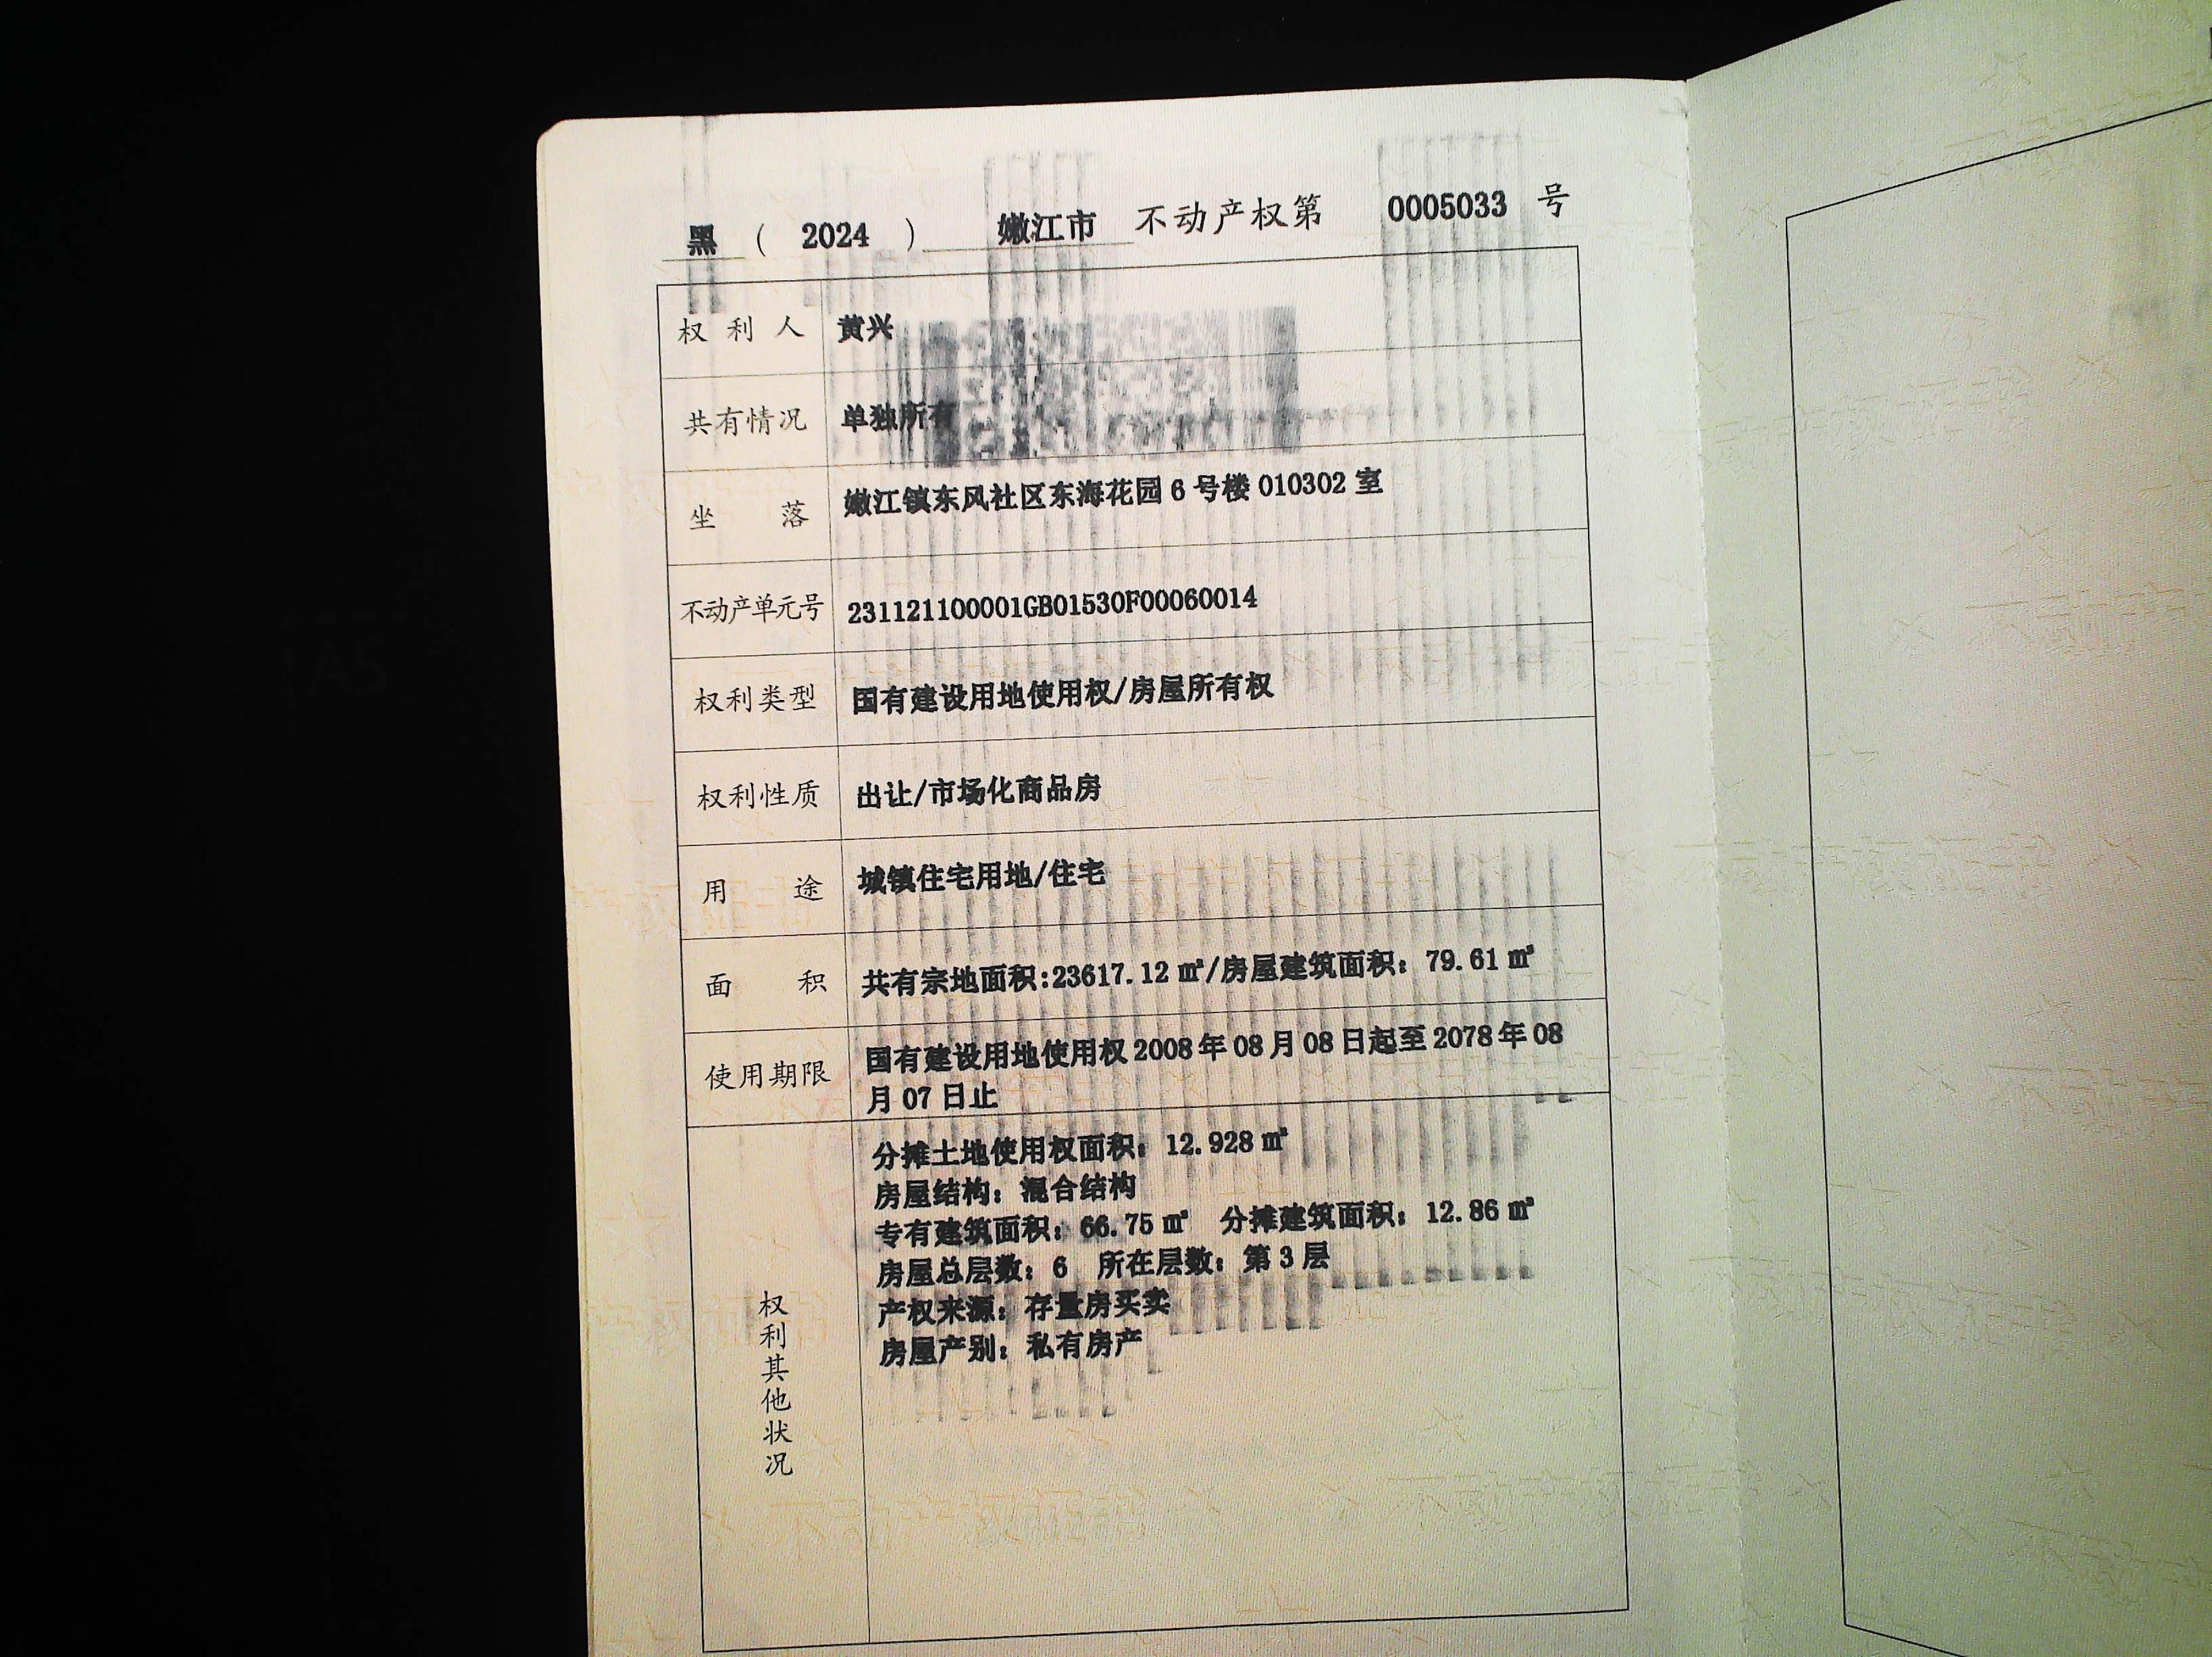 黑 ( 2024 ) 嫩江市 不动产权第 0005033 号
权利人 黄兴
共有情况 单独所有
坐落 嫩江镇东风社区东海花园 6 号楼 010302 室
不动产单元号 231121100001GB01530F00060014
权利类型 国有建设用地使用权/房屋所有权
权利性质 出让/市场化商品房
用途 城镇住宅用地/住宅
面积 共有宗地面积:23617.12 ㎡/房屋建筑面积: 79.61 ㎡
使用期限 国有建设用地使用权 2008 年 08 月 08 日起至 2078 年 08
月 07 日止
权利其他状况
分摊土地使用权面积: 12.928 ㎡
房屋结构: 混合结构
专有建筑面积: 66.75 ㎡ 分摊建筑面积: 12.86 ㎡
房屋总层数: 6 所在层数: 第 3 层
产权来源: 存量房买卖
房屋产别: 私有房产